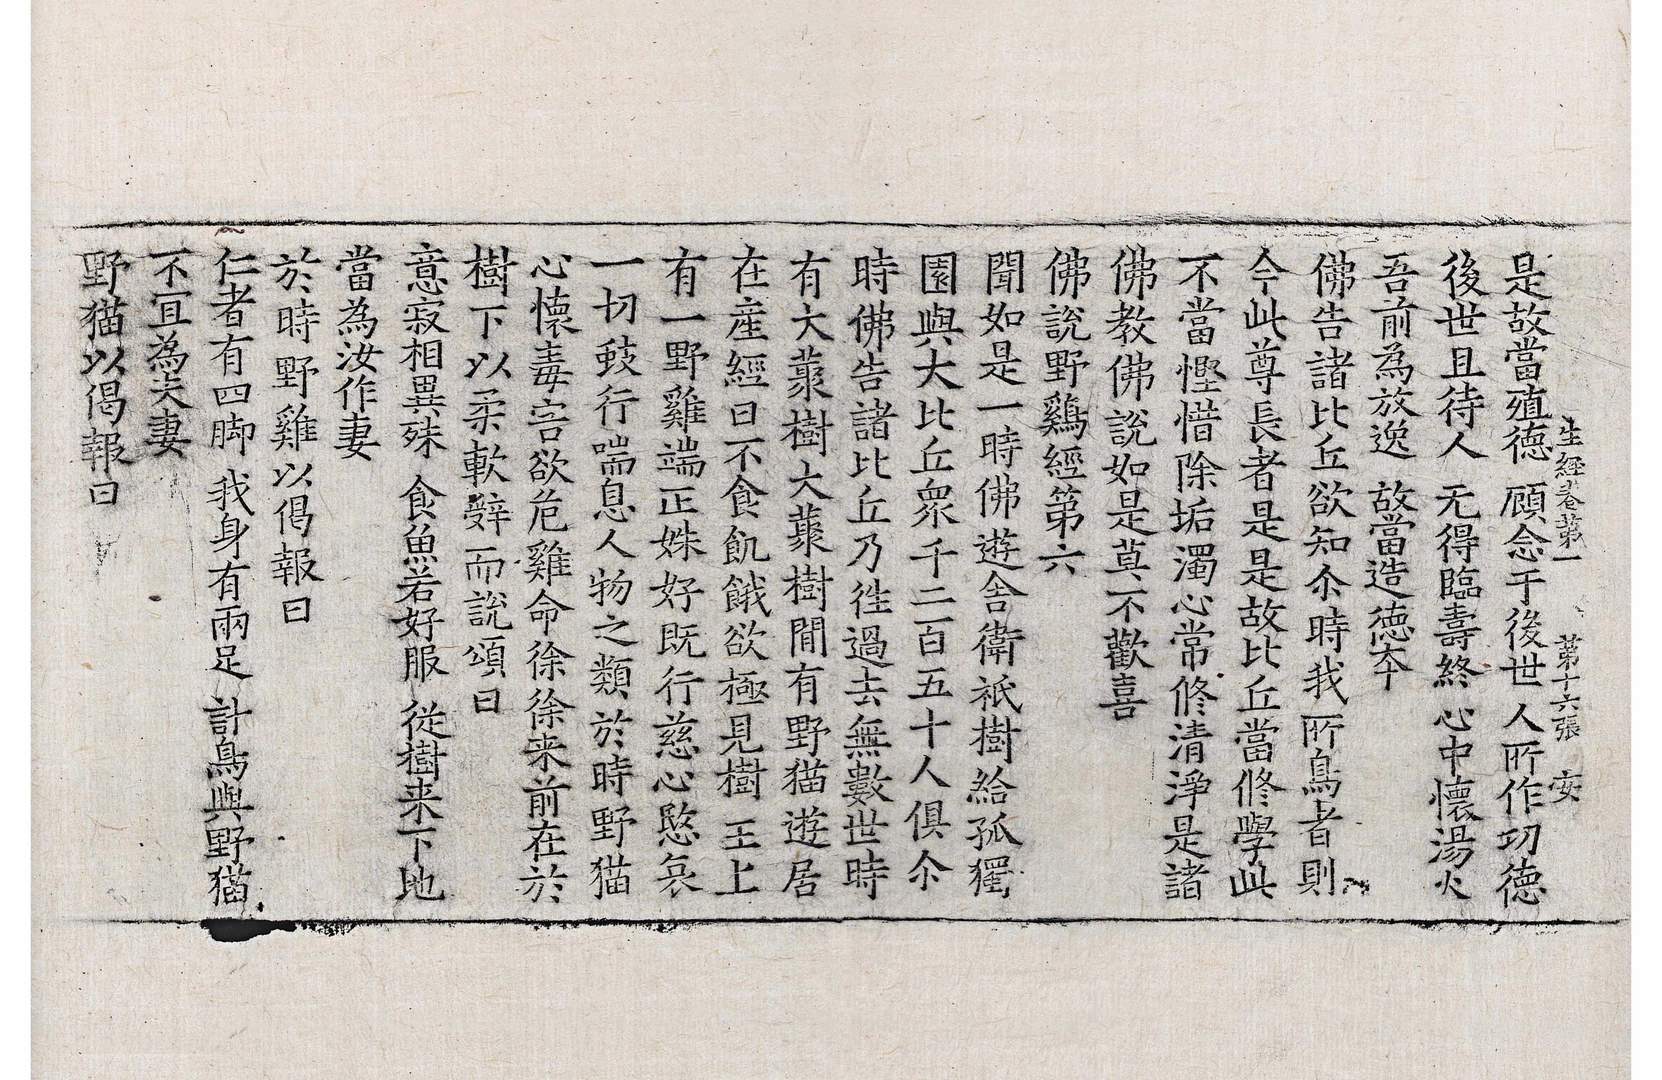 生經卷第一 第十六張 安
是故當殖德 顧念于後世 人所作功德
後世且待人 无得臨壽終 心中懷湯火
吾前為放逸 故當造徳夲
佛告諸比丘欲知尒時我所鳥者則
今此尊長者是是故比丘當修學此
不當慳惜除垢濁心常修清淨是諸
佛教佛說如是莫不歡喜
佛說野鷄經第六
聞如是一時佛遊舍衛祇樹給孤獨
園與大比丘衆千二百五十人俱尒
時佛告諸比丘乃徃過去無數世時
有大藂樹大藂樹間有野猫遊居
在産經日不食飢餓欲極見樹王上
有一野雞端正姝好既行慈心愍哀
一切蚑行喘息人物之類於時野猫
心懷毒害欲危雞命徐徐来前在於
樹下以柔軟辭而說頌曰
意寂相異殊 食魚若好服 從樹来下地
當為汝作妻
於時野雞以偈報曰
仁者有四脚 我身有兩足 計鳥與野猫
不宜為夫妻
野猫以偈報曰